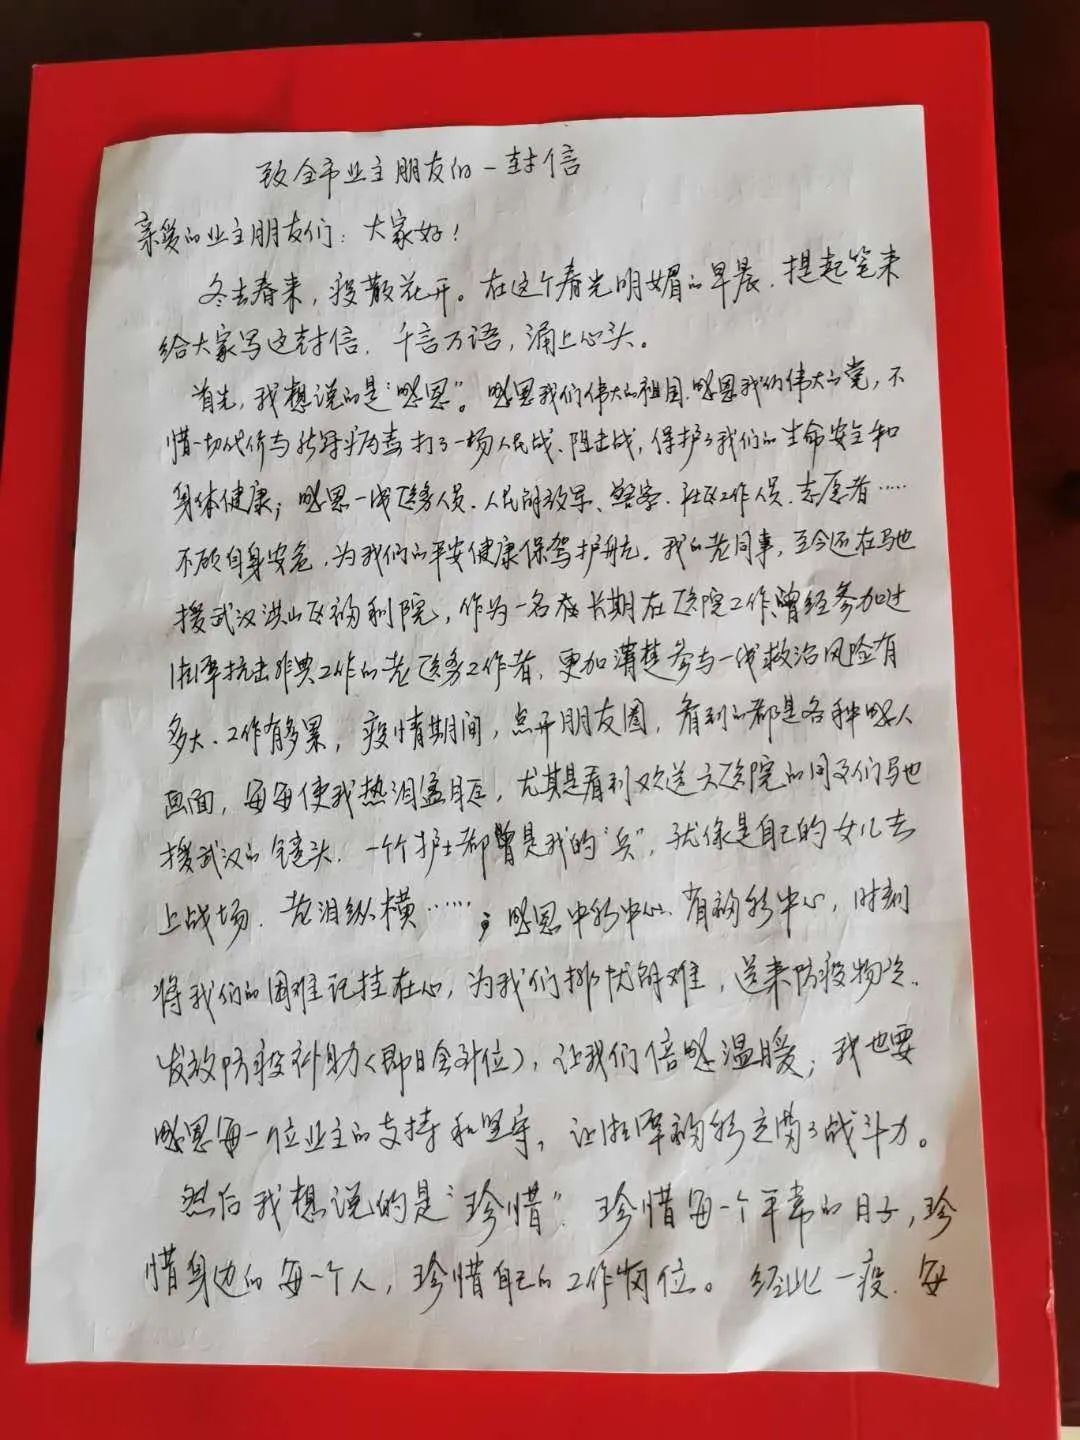 致全市业主朋友的一封信
亲爱的业主朋友们：大家好！
冬去春来，疫散花开。在这个春光明媚的早晨，提起笔来
给大家写这封信，千言万语，涌上心头。
首先，我想说的是“感恩”。感恩我们伟大的祖国，感恩我们伟大的党，不
惜一切代价与新冠病毒打了一场人民战、阻击战，保护了我们的生命安全和
身体健康；感恩一线医务人员、人民解放军、警察、社区工作人员、志愿者……
不顾自身安危，为我们的平安健康保驾护航。我的老同事，至今还在驰
援武汉洪山区福利院，作为一名在长期在医院工作曾经参加过
湘潭抗击非典工作的老医务工作者，更加清楚参与一线救治风险有
多大、工作有多累，疫情期间，点开朋友圈，看到的都是各种感人
画面，每每使我热泪盈眶，尤其是看到欢送六医院的同事们驰
援武汉的镜头，一个个护士都曾是我的“兵”，就像是自己的女儿去
上战场，老泪纵横……；感恩中彩中心、省福彩中心，时刻
将我们的困难记挂在心，为我们排忧解难，送来防疫物资、
发放防疫补助（即日会到位），让我们倍感温暖；我也要
感恩每一位业主的支持和坚守，让湘潭福彩充满了战斗力。
然后我想说的是“珍惜”。珍惜每一个平常的日子，珍
惜身边的每一个人，珍惜自己的工作岗位。经此一疫，每